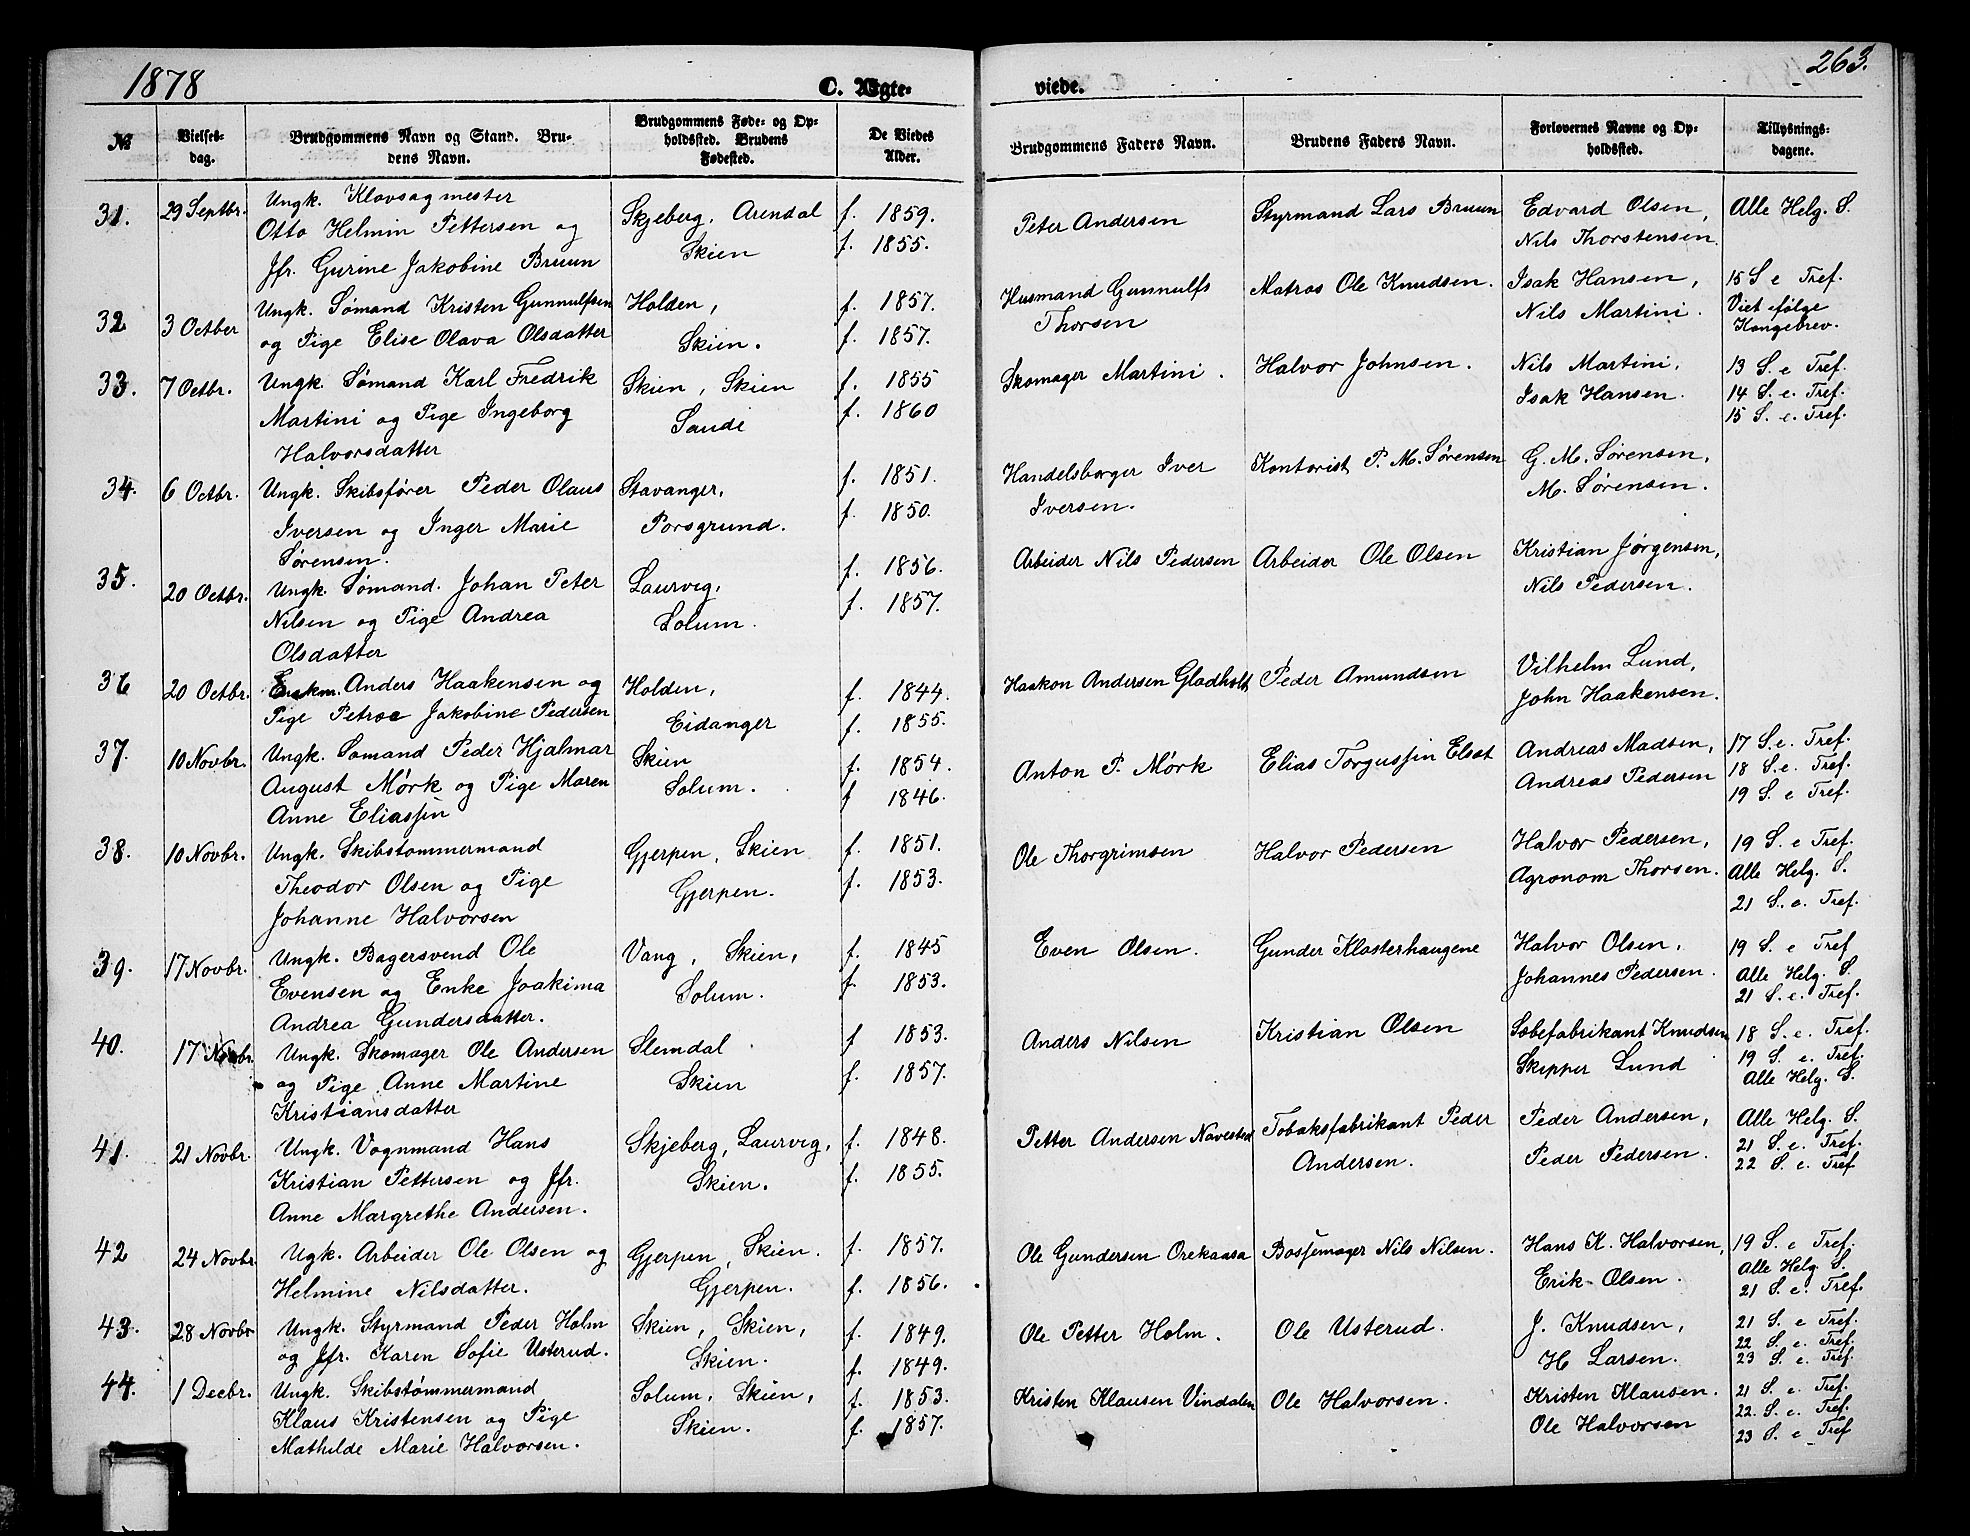 1878
C. Ægte-
viede.
263.
№
Vielses-
dag.
Brudgommens Navn og Stand. Bru-
dens Navn.
Brudgommens Føde- og Op-
holdssted. Brudens
Fødested.
De Viedes
Alder.
Brudgommens Faders Navn.
Brudens Faders Navn.
Forlovernes Navne og Op-
holdssted.
Tillysnings-
dagene.
31.
29 Septbr.
Ungk. Klavsagmester
Otto Helmin Pettersen og
Jfr. Gurine Jakobine Bruun
Skjeberg, Arendal
Skien
f. 1859.
f. 1855.
Peter Andersen
Styrmand Lars Bruun
Edvard Olsen,
Nils Thorstensen.
Alle Helg. S.
32
3 Octber
Ungk. Sømand Kristen Gunnulfsen
og Pige Elise Olava Olsdatter
Holden,
Skien.
f. 1857.
f. 1857.
Husmand Gunnulfs
Thorsen
Matros Ole Knudsen.
Isak Hansen,
Nils Martini.
15 S e Tref.
Viet ifølge
Kongebrev.
33.
7 Octbr.
Ungk. Sømand Karl Fredrik
Martini og Pige Ingeborg
Halvorsdatter
Skien, Skien
Saude
f. 1855
f. 1860
Skomager Martini.
Halvor Johnsen.
Nils Martini,
Isak Hansen.
13 S. e Tref.
14 S. e. Tref.
15 S. e. Tref.
34.
6 Octbr.
Ungk. Skibsfører Peder Olaus
Iversen og Inger Marie
Sørensen.
Stavanger,
Porsgrund.
f. 1851.
f. 1850.
Handelsborger Iver
Iversen.
Kontorist P. M. Sørensen
G. M. Sørensen,
M. Sørensen.
35.
20 Octbr.
Ungk. Sømand. Johan Peter
Nilsen og Pige Andrea
Olsdatter
Laurvig,
Solum.
f. 1856.
f. 1857.
Arbeider Nils Pedersen
Arbeider Ole Olsen
Kristian Jørgensen,
Nils Pedersen.
36
20 Octbr.
Enkm. Anders Haakensen og
Pige Petrae Jakobine Pedersen
Holden,
Eidanger
f. 1844.
f. 1855.
Haakon Andersen Gladholt
Peder Amundsen
Vilhelm Lund,
John Haakensen.
37.
10 Novbr.
Ungk. Sømand Peder Hjalmar
August Mørk og Pige Maren
Anne Eliassen
Skien
Solum.
f. 1854.
f 1846.
Anton P. Mørk
Elias Torgussen Elsat
Andreas Madsen,
Andreas Pedersen
17 S. e. Tref.
18 S. e. Tref.
19 S. e Tref.
38.
10 Novbr.
Ungk. Skibstømmermand
Theodor Olsen og Pige
Johanne Halvorsen
Gjerpen, Skien
Gjerpen.
f. 1851.
f. 1853.
Ole Thorgrimsen
Halvor Pedersen
Halvor Pedersen,
Agronom Thorsen.
19 S. e Tref.
Alle Helg. S.
21 S. e. Tref.
39.
17 Novbr.
Ungk. Bagersvend Ole
Evensen og Enke Joakima
Andrea Gundersdatter.
Vang, Skien,
Solum.
f. 1845
f. 1853.
Even Olsen.
Gunder Klosterhaugene
Halvor Olsen,
Johannes Pedersen.
19 S. e Tref
Alle Helg. S.
21 S. e. Tref.
40.
17 Novbr
Ungk. Skomager Ole Andersen
og Pige Anne Martine
Kristiansdatter
Slemdal
Skien
f 1853.
f. 1857.
Anders Nilsen
Kristian Olsen
Sæbefabrikant Knudsen
Skipper Lund
18 S. e. Tref.
19 S. e. Tref.
Alle Helg. S.
41.
21 Novbr.
Ungk. Vognmand Hans
Kristian Pettersen og Jfr.
Anne Margrethe Andersen.
Skjeberg, Laurvig,
Skien.
f. 1848.
f. 1855.
Petter Andersen Navested
Tobaksfabrikant Peder
Andersen.
Peder Andersen,
Peder Pedersen.
Alle Helg. S.
21 S. e. Tref.
22 S. e. Tref
42
24 Novbr
Ugk. Arbeider Ole Olsen og
Helmine Nilsdatter.
Gjerpen, Skien.
Gjerpen.
f. 1857.
f. 1856.
Ole Gundersen Orekaasa
Bøssemager Nils Nilsen.
Hans K. Halvorsen,
Erik Olsen.
19 S. e Tref.
Alle Helg S.
21 S. e. Tref.
43.
28 Novbr
Ungk. Styrmand Peder Holm
og Jfr. Karen Sofie Usterud.
Skien, Skien,
Skien.
f. 1849.
f. 1849.
Ole Petter Holm.
Ole Usterud.
J. Knudsen,
H Larsen.
21 S. e Tref.
22 S. e. Tref.
23 S. e. Tref.
44.
1 Decbr.
Ungk. Skibstømmermand
Klaus Kristensen og Pige
Mathilde Marie Halvorsen.
Solum, Skien,
Skien.
f. 1853.
f. 1857.
Kristen Klausen Vindalen
Ole Halvorsen.
Kristen Klausen.
Ole Halvorsen
21 S. e. Tref.
22. S. e. Tref.
23 S. e Tref